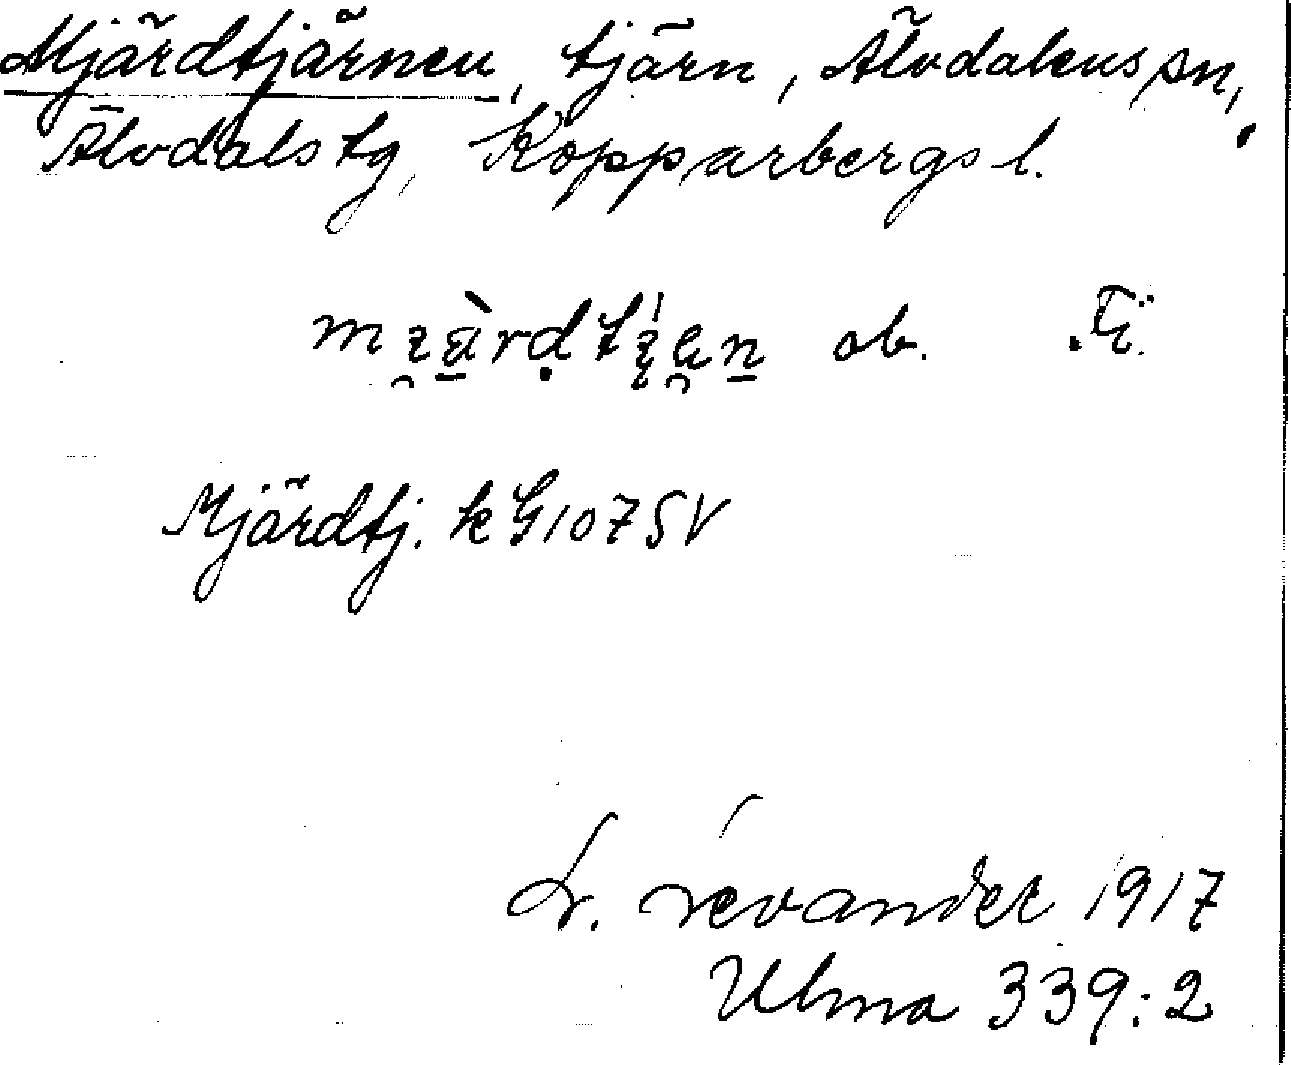 Mjärdtjärnen, tjärn, Älvdalens sn,
Älvdals tg, Kopparbergs l.
ob.
Mjärdtj. k G107SV
L. Levander 1917
Ulma 339:2